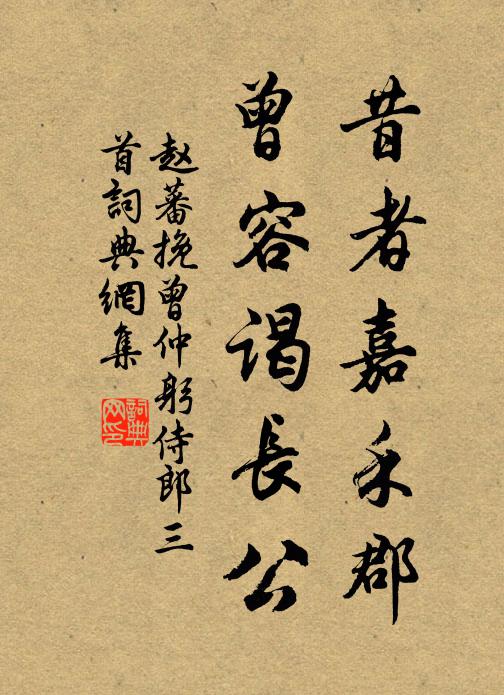 昔者嘉禾郡
曾容谒長公
赵蕃挽曾仲躬侍郎三
首詞典網集
詞典
网印